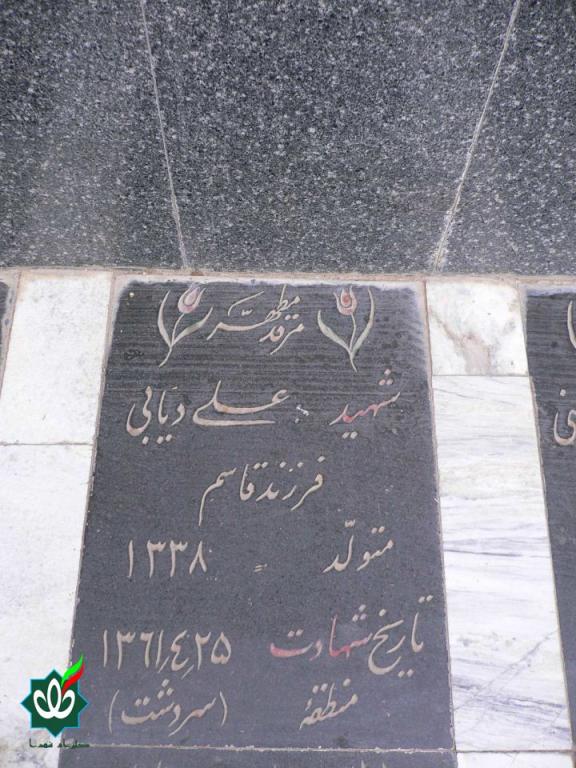 مرقد مطهر
شهید علی دیابی
فرزند قاسم
متولّد ۱۳۳۸
تاریخ شهادت ۱۳۶۱٫۴٫۲۵
منطقهٔ (سردشت)